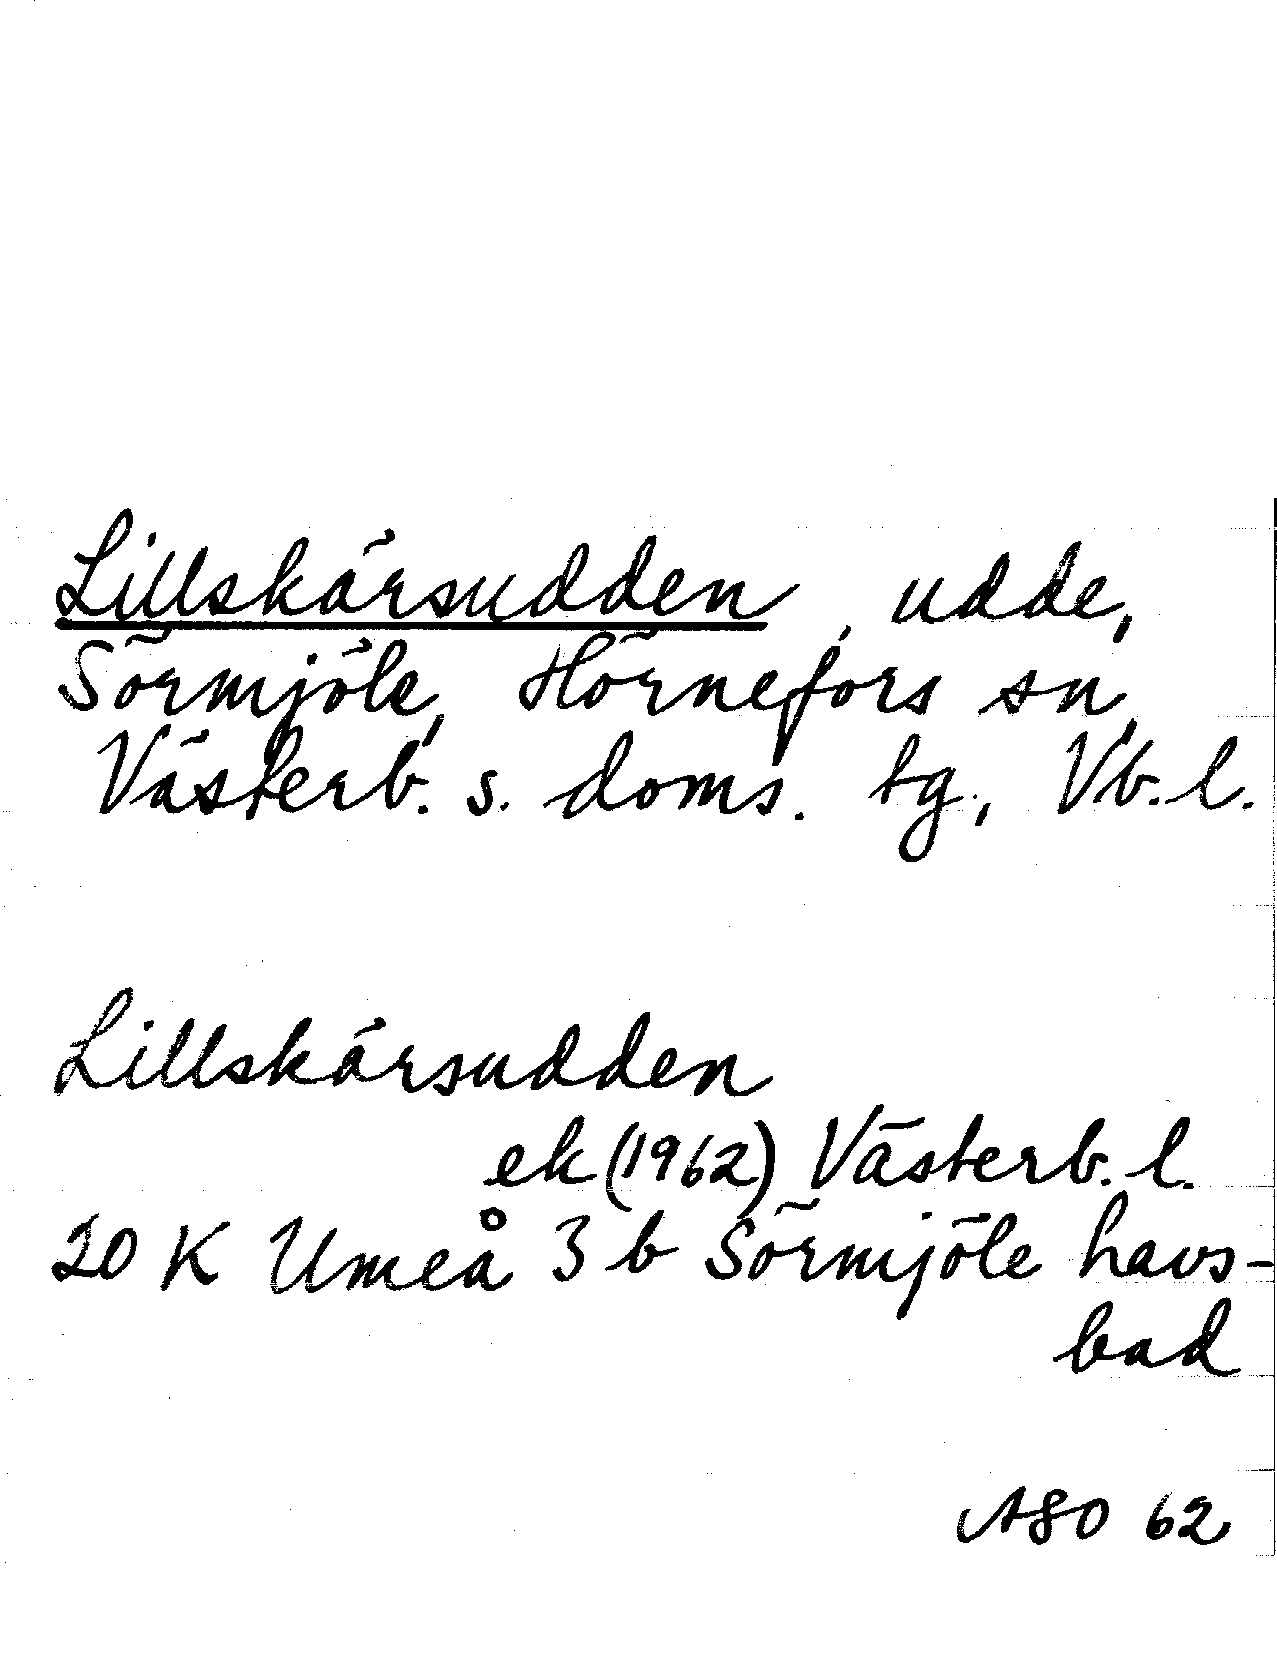 Lillskärsudden, udde,
Sörmjöle, Hörnefors sn,
Västerb. s. doms. tg, Vb. l.
Lillskärsudden
ek (1962) Västerb. l.
20 K Umeå 3 b Sörmjöle havs-
bad
ASO 62